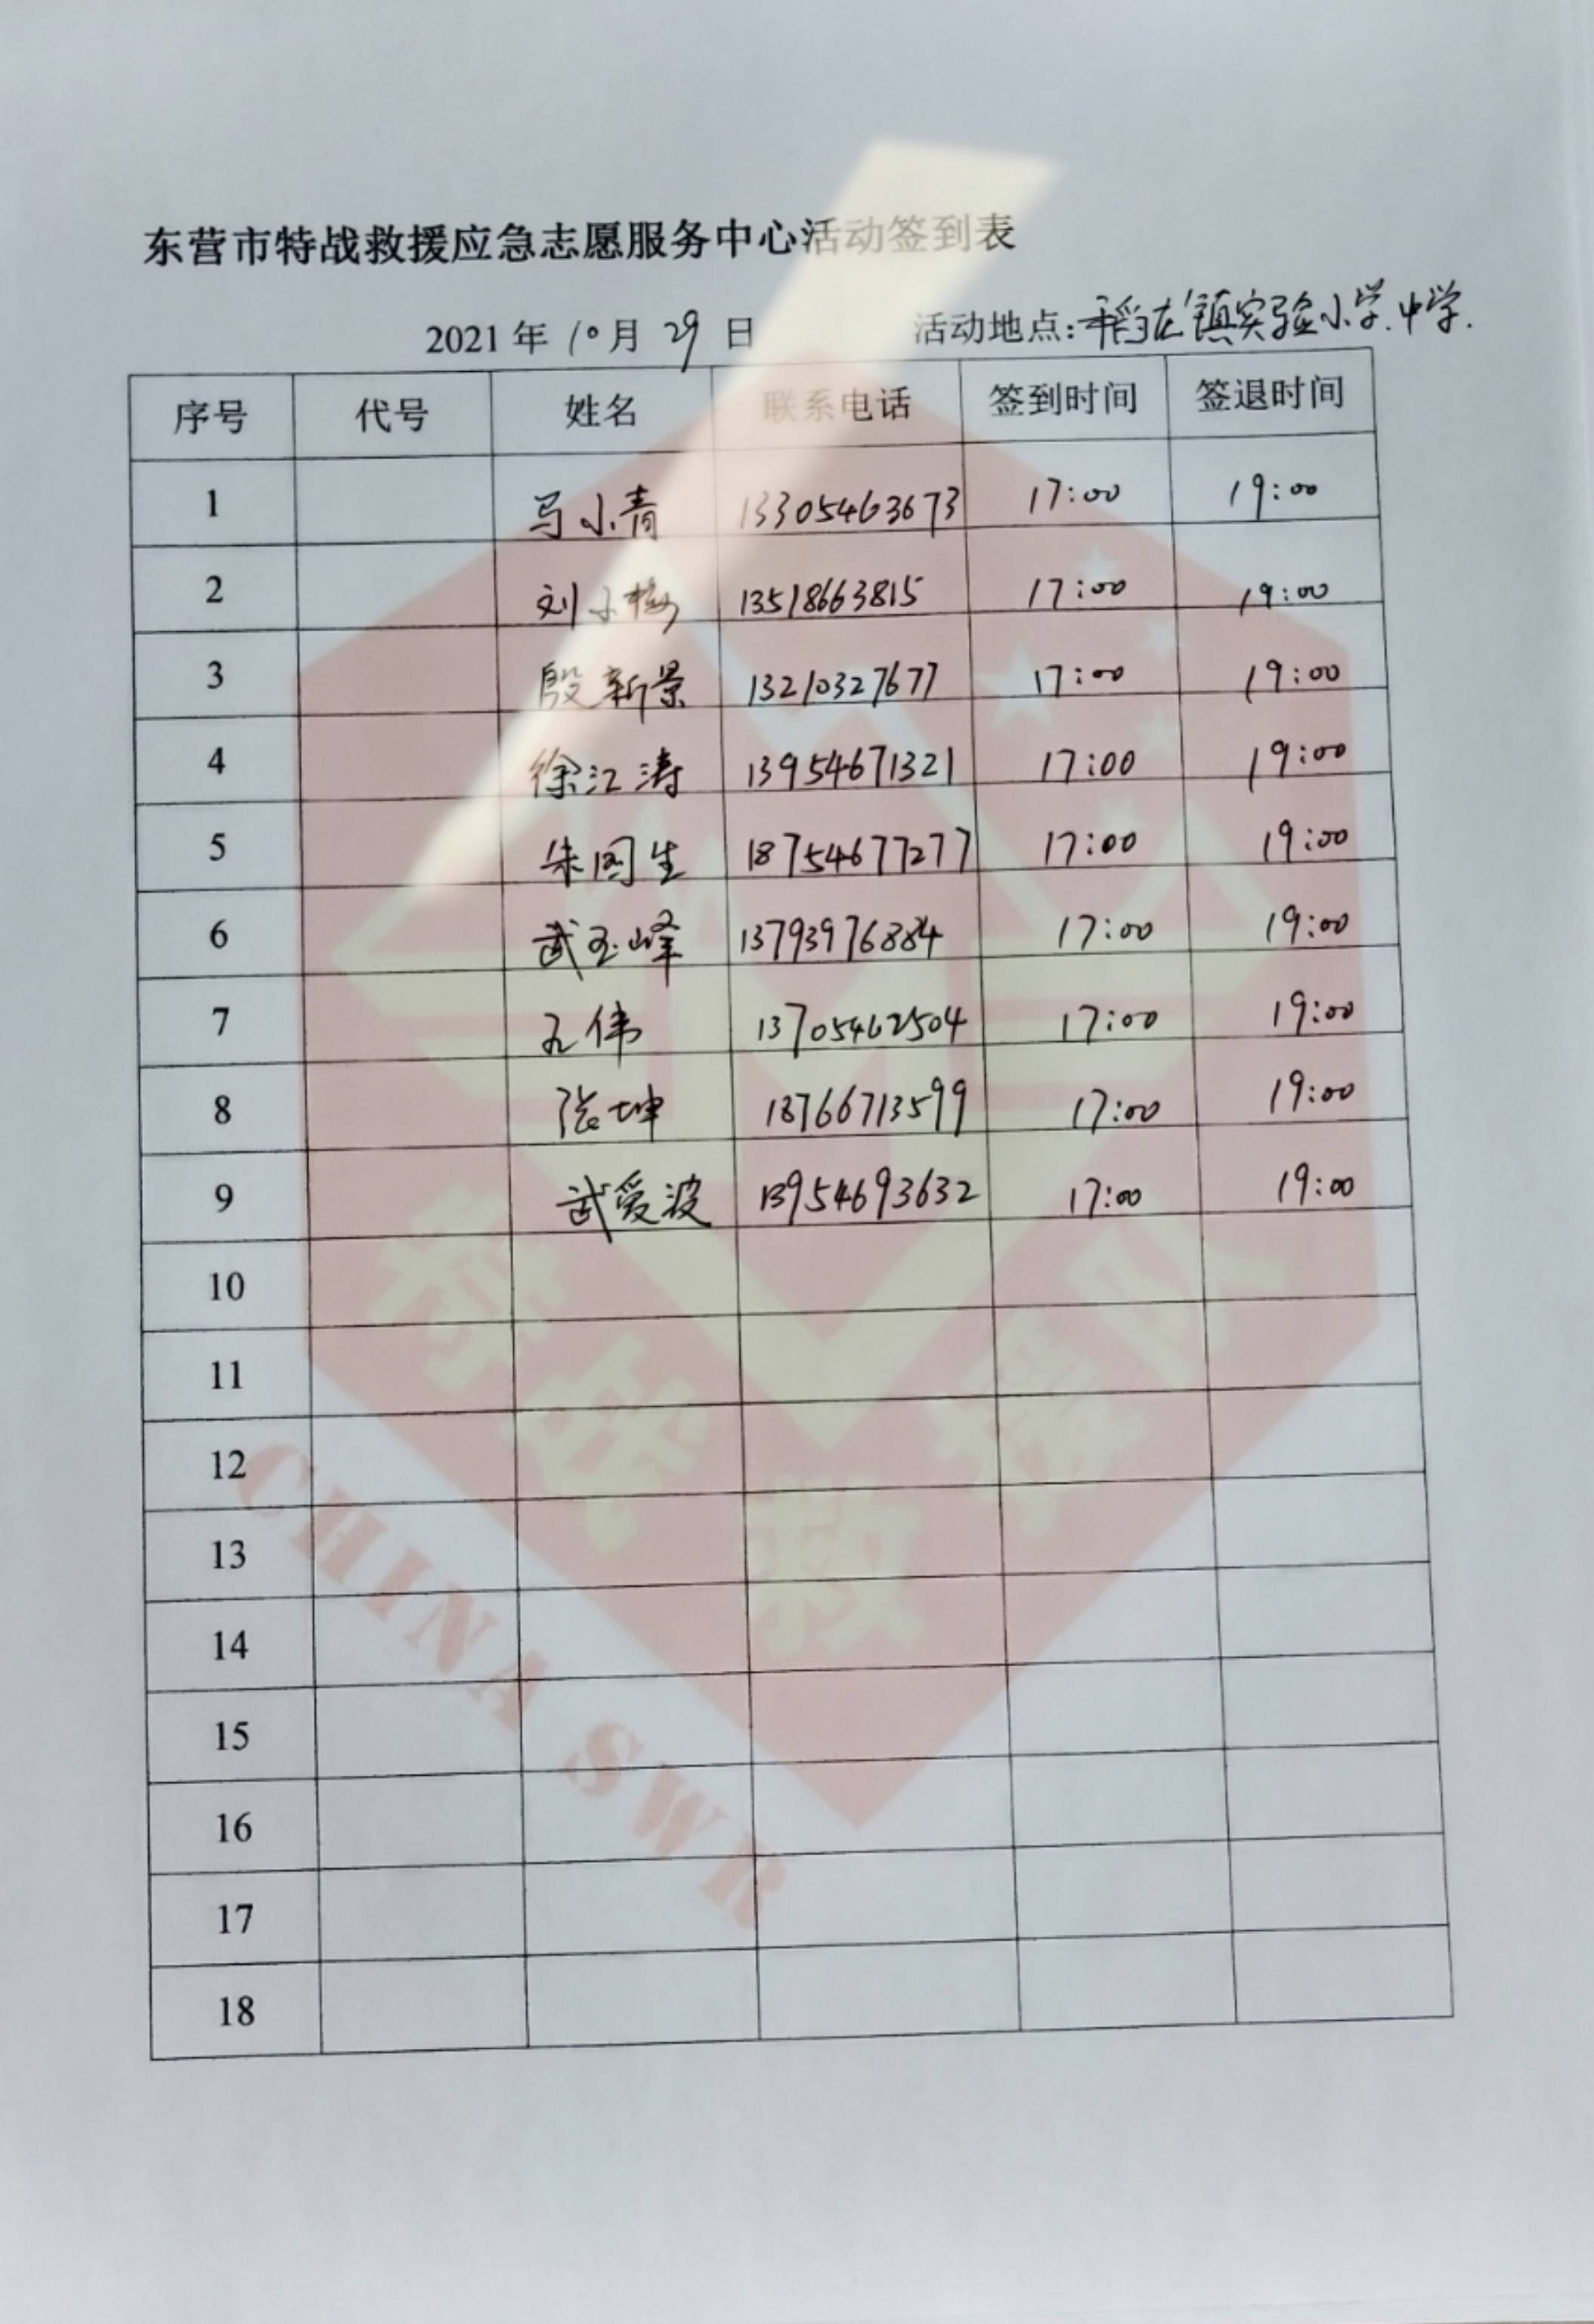 东营市特战救援应急志愿服务中心活动签到表
2021年10月29日 活动地点:稻庄镇实验小学.中学.
序号 代号 姓名 联系电话 签到时间 签退时间
1 马小青 13305463673 17:00 19:00
2 刘小梅 13518663815 17:00 19:00
3 殷新景 13210327677 17:00 19:00
4 徐江涛 13954671321 17:00 19:00
5 朱国生 18754677277 17:00 19:00
6 武玉峰 13793976884 17:00 19:00
7 孔伟 13705462504 17:00 19:00
8 张坤 18766713599 17:00 19:00
9 武爱波 13954693632 17:00 19:00
10
11
12
13
14
15
16
17
18
特战救援队
CHINA SWR